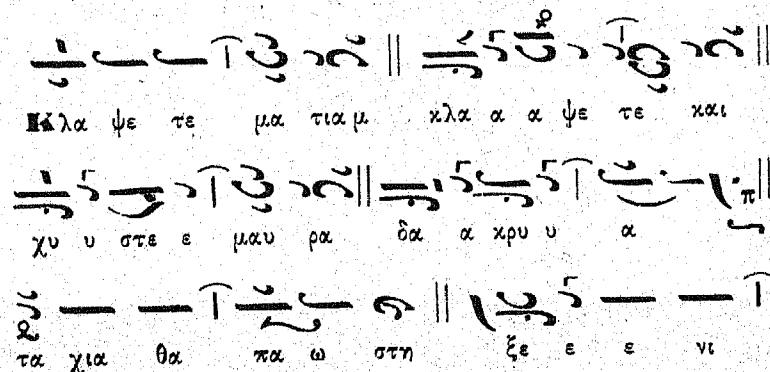 Κλα ψε τε μα τια μ κλα α α ψε τε και
χυ υ στε ε μαυ ρα δα α κρυ υ α π
τα χια θα πα ω στη ξε ε ε νι